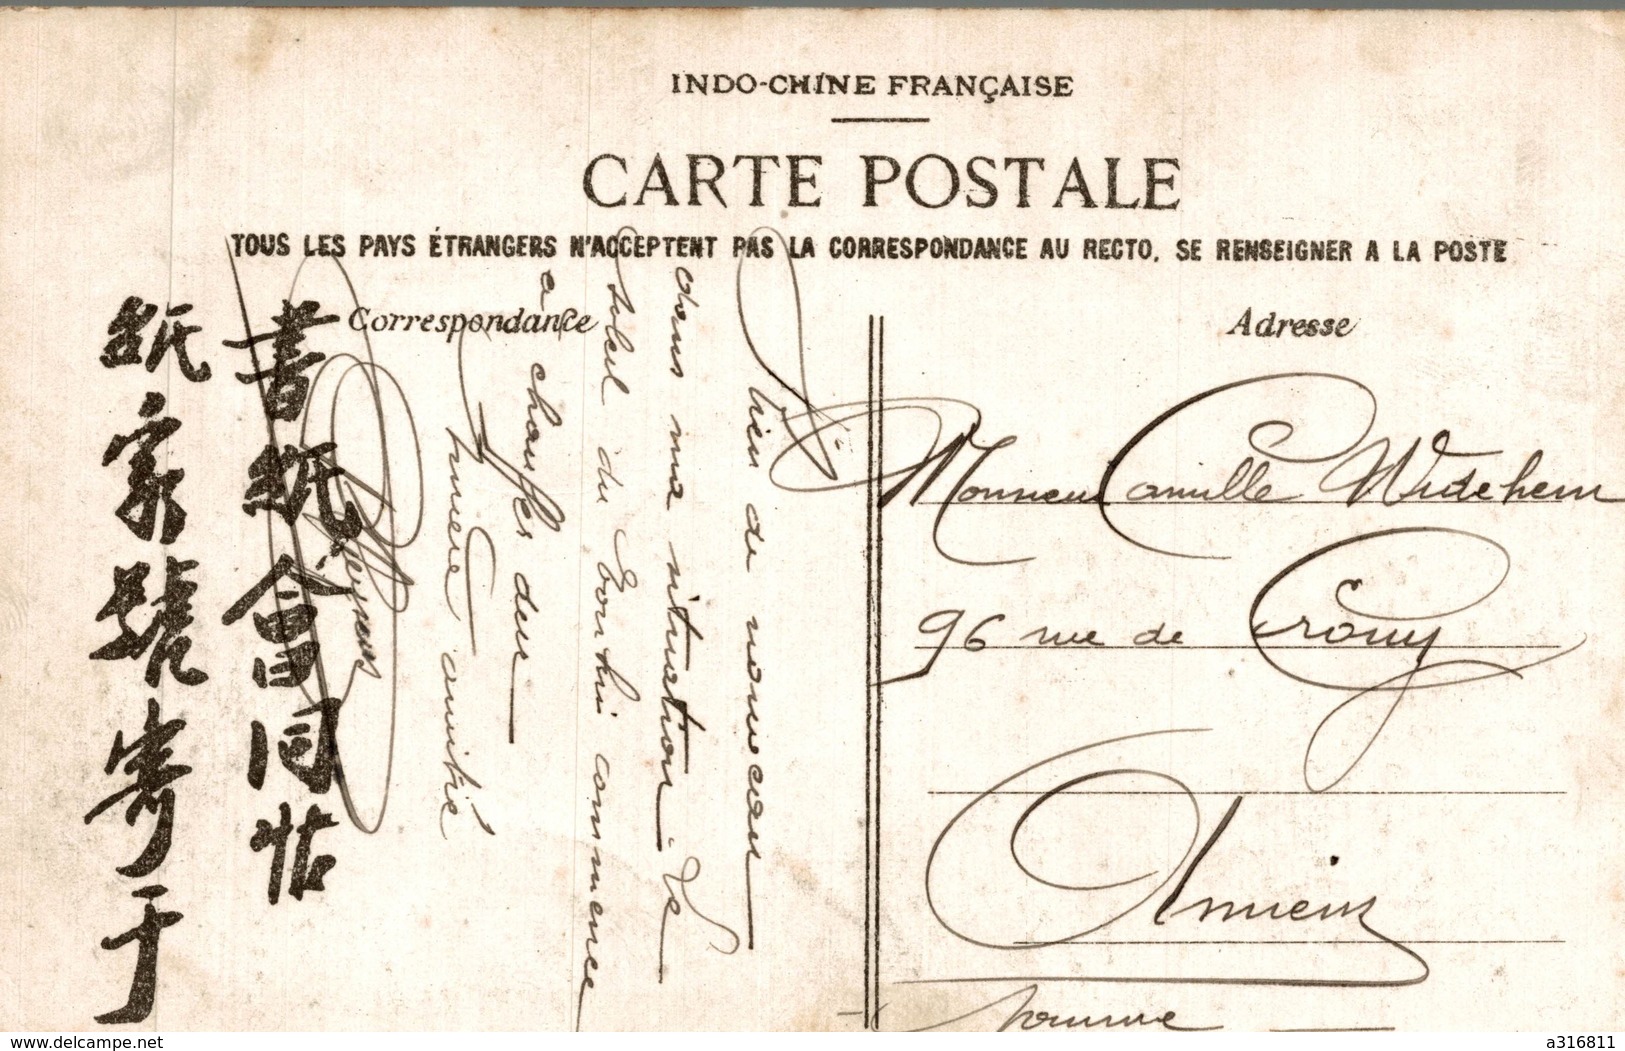 INDO-CHINE FRANÇAISE
CARTE POSTALE
TOUS LES PAYS ÉTRANGERS N'ACCEPTENT PAS LA CORRESPONDANCE AU RECTO, SE RENSEIGNER A LA POSTE
Correspondance
Adresse
Rien de nouveau
dans ma situation. Le
soleil du Tonkin commence
a chauffer dur
Sincère amitié
Monsieur Camille Widehem
96 rue de Crouy
Amiens
Somme
書紙會同
紙家號寄于
delcampe.net
a316811